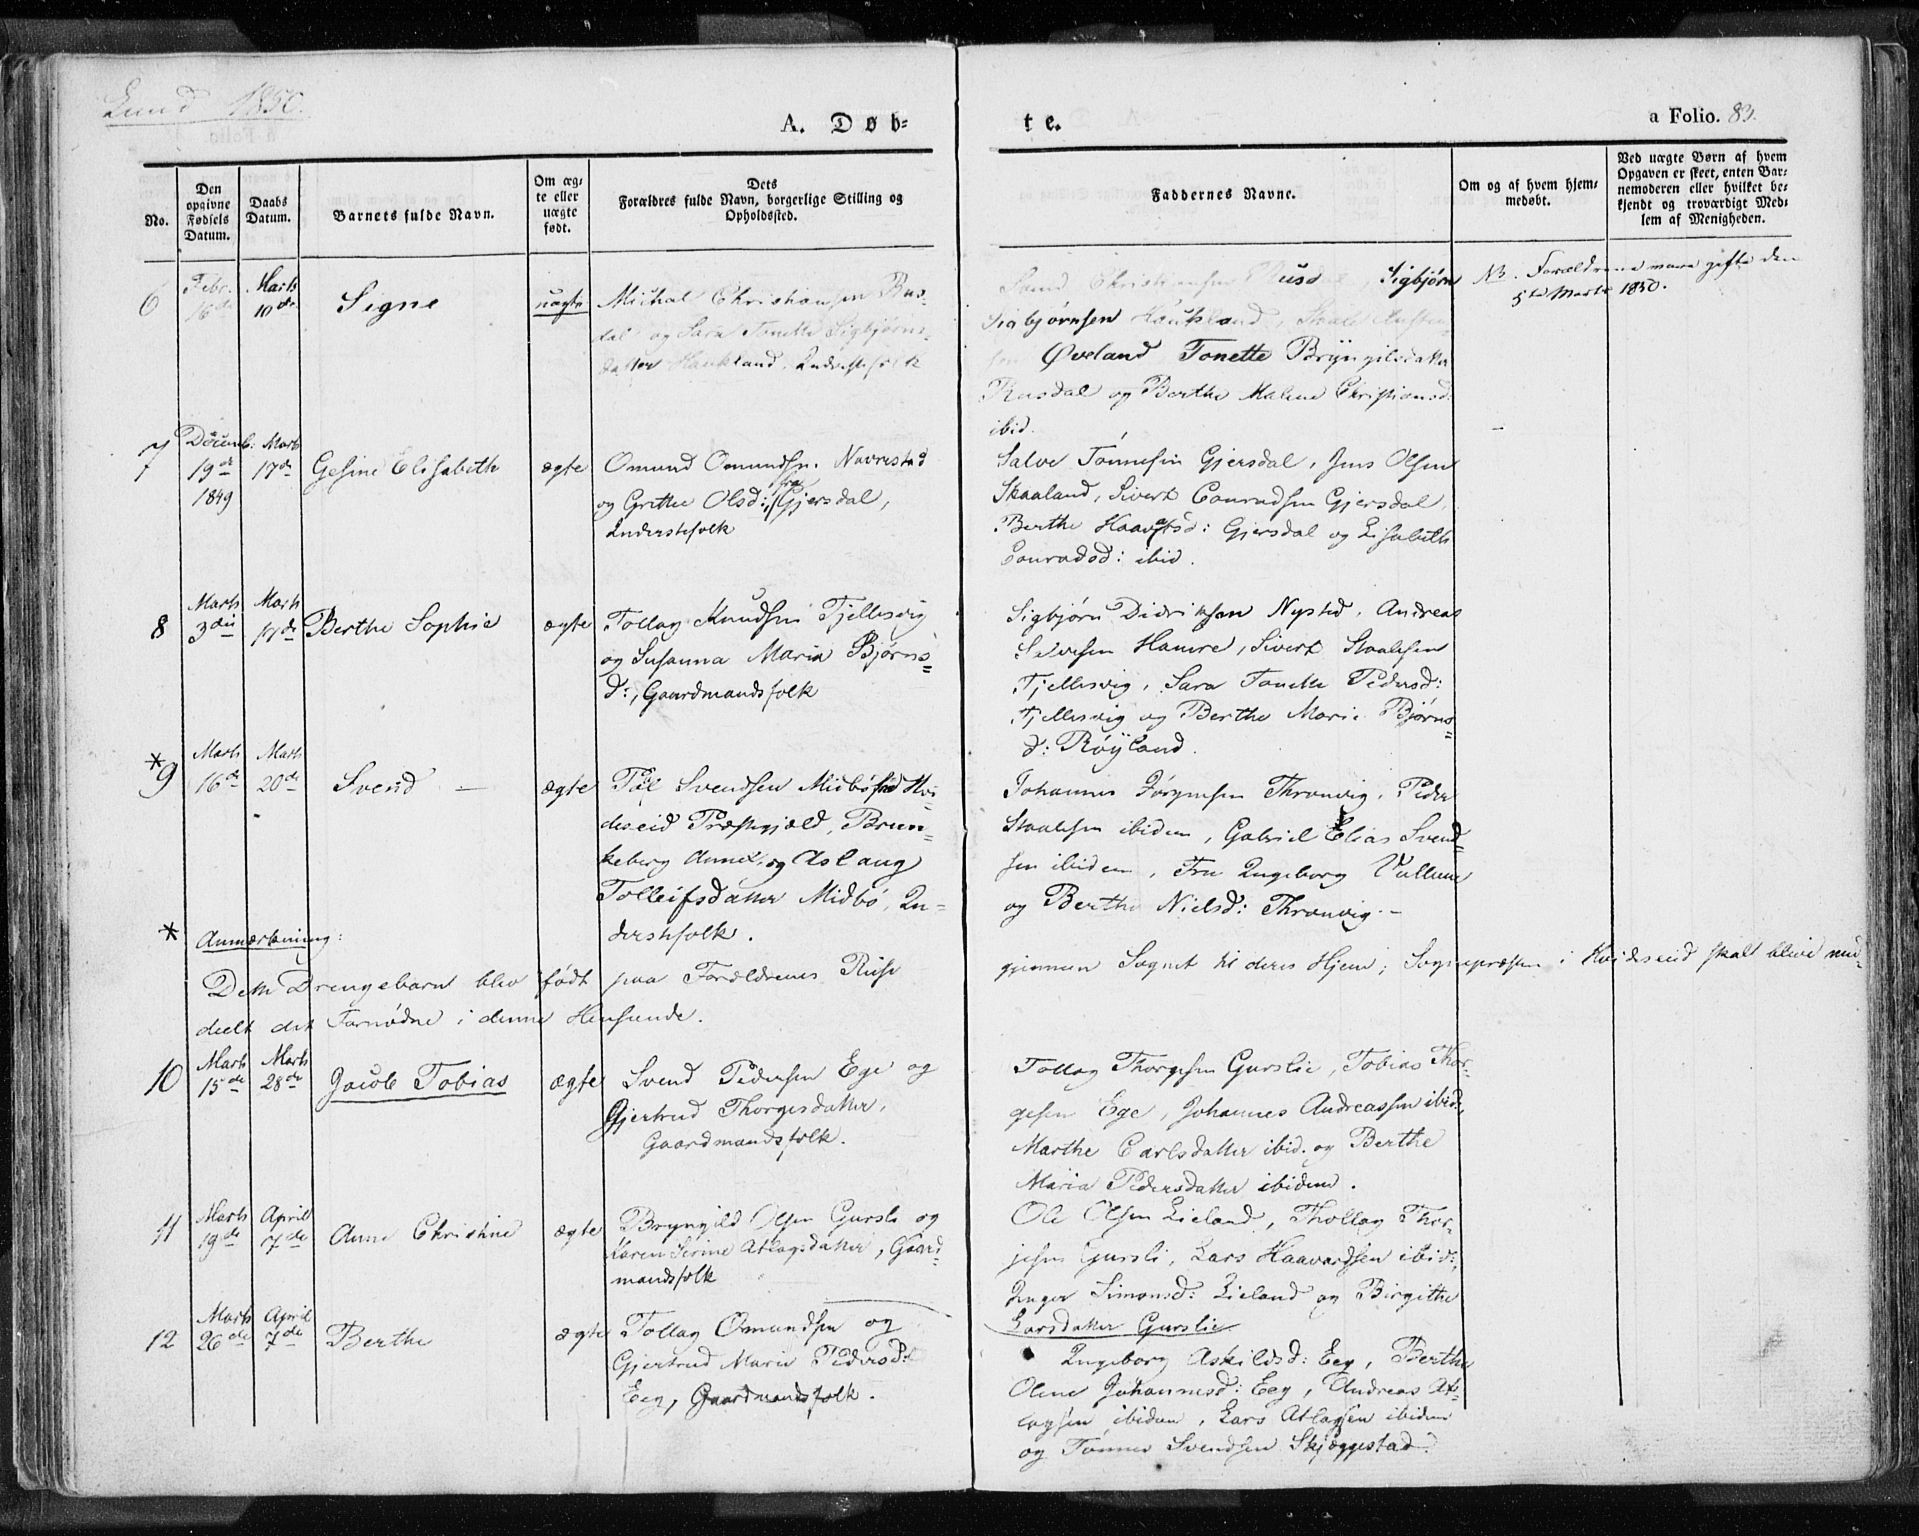 Lund 1850.
A. Døb-
te.
a Folio. 83.
No.
Den
opgivne
Fødsels
Datum.
Daabs
Datum.
Barnets fulde Navn.
Om æg-
te eller
uægte
født.
Dets
Forældres fulde Navn, borgerlige Stilling og
Opholdssted.
Faddernes Navne.
Om og af hvem hjem-
medøbt.
Ved uægte Børn af hvem
Opgaven er skeet, enten Bar-
nemoderen eller hvilket be-
kjendt og troværdigt Med-
lem af Menigheden.
6
Febr.
16de
Marts
10de
Signe
uægte
Michal Christiansen Rus-
dal og Sara Tonette Sigbjørns-
datter Haukland, Inderstefolk
Christiansen Sigbjørn
Sigbjørnsen Haukland,
Øveland Tonette Bryngilsdatter
Rusdal og Berthe Malene Christiansd:
ibid.
NB. Forældrene vare gifte den
5te Marts 1850.
7
Decemb:
19de
1849
Marts
17de
Gesine Elisabeth
ægte
Omund Omundsn. Navrestad
og Grethe Olsd: fra Gjersdal,
Inderstefolk
Salve Tønnesen Gjersdal, Jens Olsen
Skaaland, Sivert Conradsen Gjersdal,
Berthe Haavatsd: Gjersdal og Lisabeth
Conradsd: ibid.
8
Marts
3die
Marts
17de
Berthe Sophie
ægte
Tollag Knudsen Fjellesvig
og Susanna Maria Bjørns-
d:, Gaardmandsfolk
Sigbjørn Didriksen Nysted, Andreas
Salvesen Hamre, Sivert Staalesen
Fjellesvig, Sara Tonette Pedersd:
Fjellesvig og Berthe Marie Bjørns-
d: Røyland.
*9
Marts
16de
Marts
20de
Svend –
ægte
Pål Svendsen Midbø fra Hvi-
deseid Præstegjæld, Brun-
keberg Annex, og Aslaug
Tolleifsdatter Midbø, In-
derstefolk.
Johannes Jørgensen Thronvig, Peder
Staalesen ibidem, Gabriel Elias Svend-
sen ibidem, Fru Ingeborg Vullum
og Berthe Nielsd: Thronvig. –
* Anmærkning:
Dette Drengebarn blev født paa Forældrenes Reise gjennem Sognet til deres Hjem; Sognepræsten i Hvideseid skal blive med-
deelt det Fornødne i denne Henseende.
10
Marts
15de
Marts
28de
Jacob Tobias
ægte
Svend Pedersen Ege og
Gjertrud Thorgesdatter,
Gaardmandsfolk.
Tollag Thorgesen Gurslie, Tobias Thor-
gesen Ege, Johannes Andreassen ibid.
Marthe Carlsdatter ibid. og Berthe
Maria Pedersdatter ibidem.
11
Marts
19de
April
7de
Anne Christine
ægte
Bryngild Olsen Gursli og
Karen Serine Atlagsdatter, Gaard-
mandsfolk
Ole Olsen Lieland, Thollag Thor-
jesen Gursli, Lars Haavardsen ibid:,
Inger Simonsd: Lieland og Birgithe
Larsdatter Gurslie
12
Marts
26de
April
7de
Berthe
ægte
Tollag Omundsen og
Gjertrud Marie Pedersd:
Eeg, Gaardmandsfolk.
Ingeborg Askildsd: Eeg, Berthe
Oline Johannesd: Eeg, Andreas At-
lagsen ibidem, Lars Atlagsen ibidem
og Tønnes Svendsen Skjæggestad.